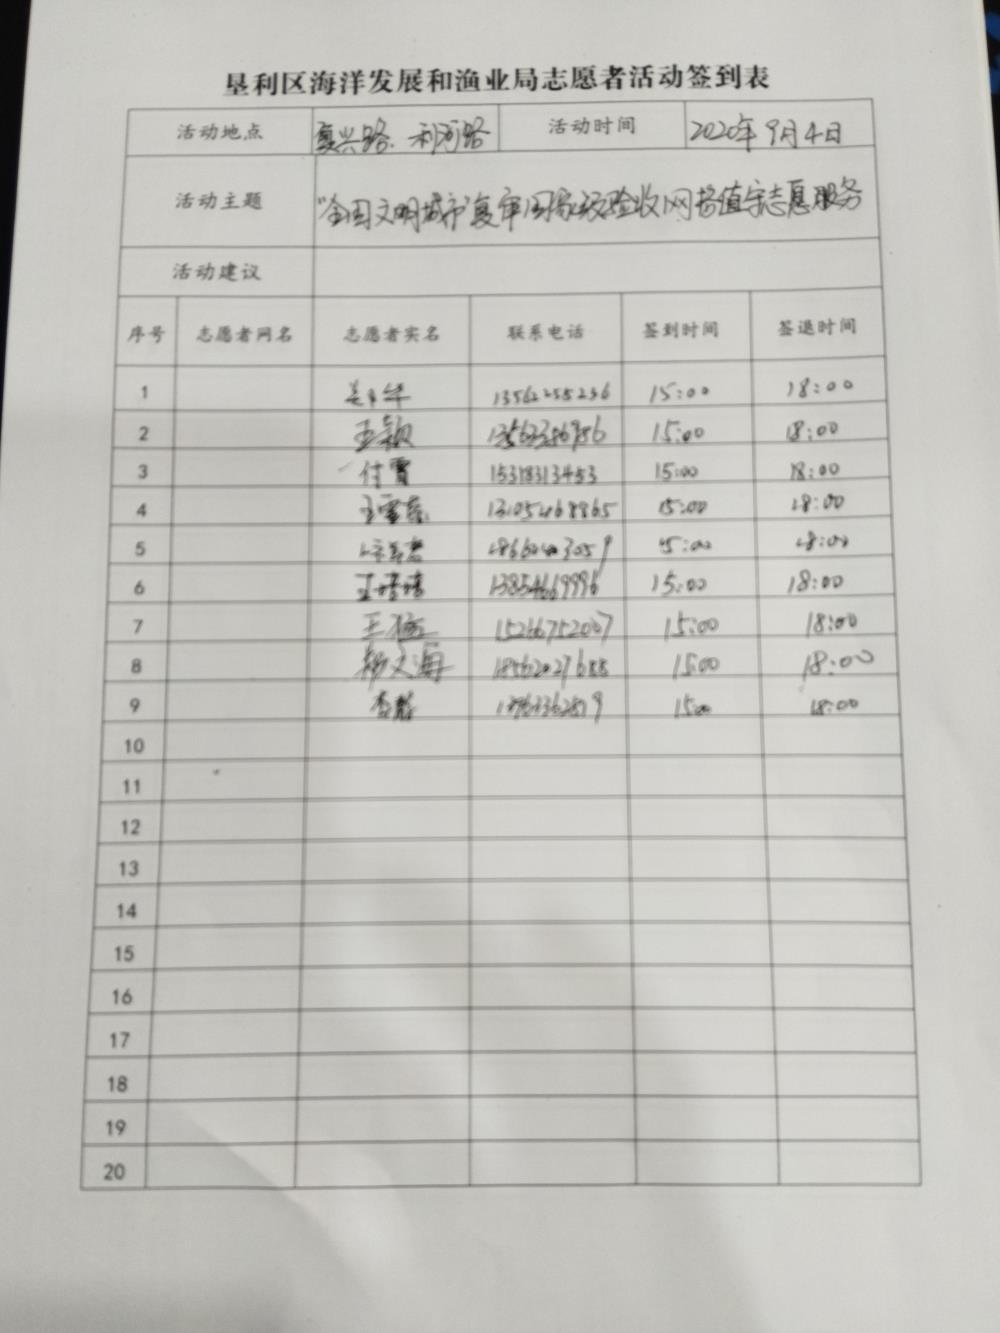 垦利区海洋发展和渔业局志愿者活动签到表
活动地点 复兴路、利河路 活动时间 2020年9月4日
活动主题 "全国文明城市"复审国家级验收网格值守志愿服务
活动建议
序号 志愿者网名 志愿者实名 联系电话 签到时间 签退时间
1 13562255236 15:00 18:00
2 王颖 15:00 18:00
3 付霄 15318313453 15:00 18:00
4 15:00 18:00
5 15:00 18:00
6 13854669996 15:00 18:00
7 王猛 15266752007 15:00 18:00
8 15:00 18:00
9 15:00 18:00
10
11
12
13
14
15
16
17
18
19
20